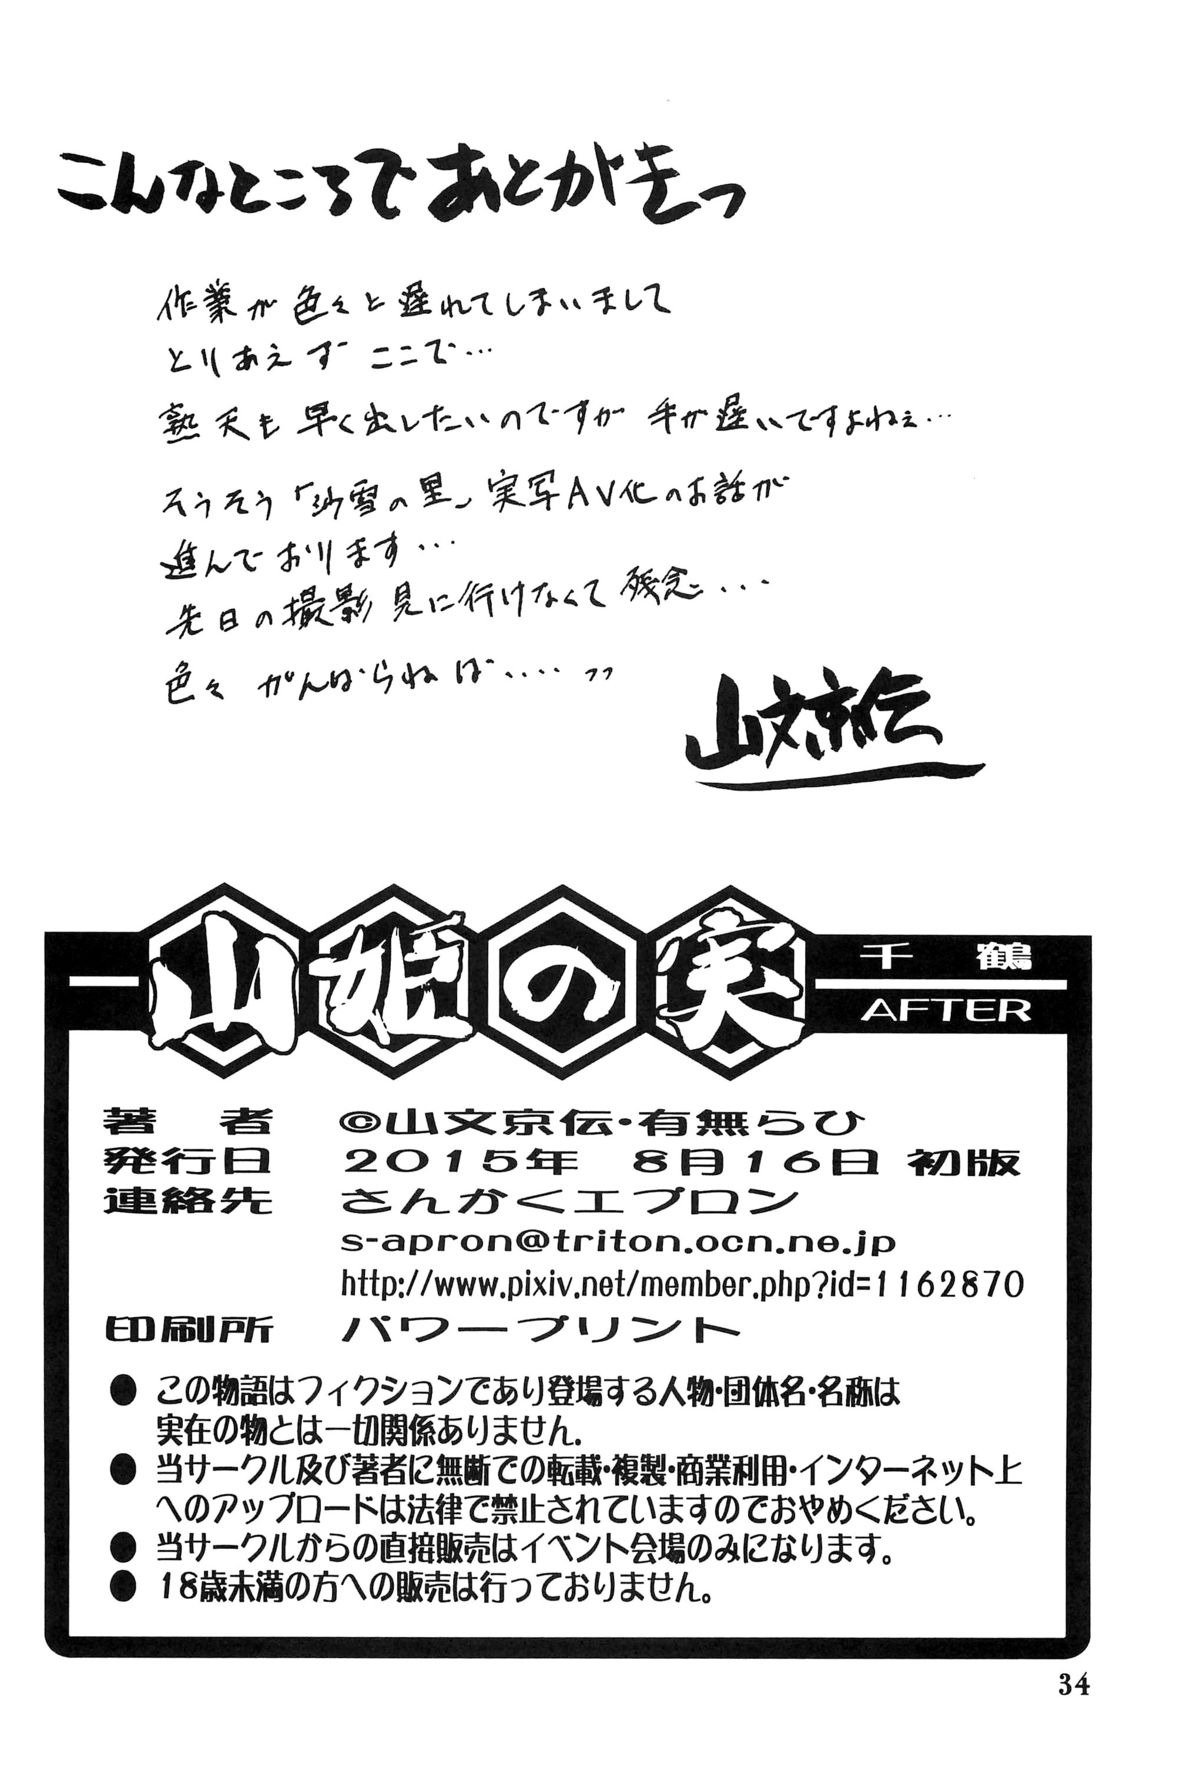 こんなところであとがきっ
作業が色々と遅れてしまいまして
とりあえず ここで…
熟天も早く出したいのですが 手が遅いですよねぇ…
そうそう「沙雪の里」実写AV化のお話が
進んでおります…
先日の撮影見に行けなくて残念…
色々 がんばらねば‥‥ッ
山文京伝
山姫の実
千鶴
AFTER
著者 ©山文京伝・有無らひ
発行日 2015年 8月16日 初版
連絡先 さんかくエプロン
s-apron@triton.ocn.ne.jp
http://www.pixiv.net/member.php?id=1162870
印刷所 パワープリント
● この物語はフィクションであり登場する人物・団体名・名称は
実在の物とは一切関係ありません.
● 当サークル及び著者に無断での転載・複製・商業利用・インターネット上
へのアップロードは法律で禁止されていますのでおやめください。
● 当サークルからの直接販売はイベント会場のみになります。
● 18歳未満の方への販売は行っておりません。
34